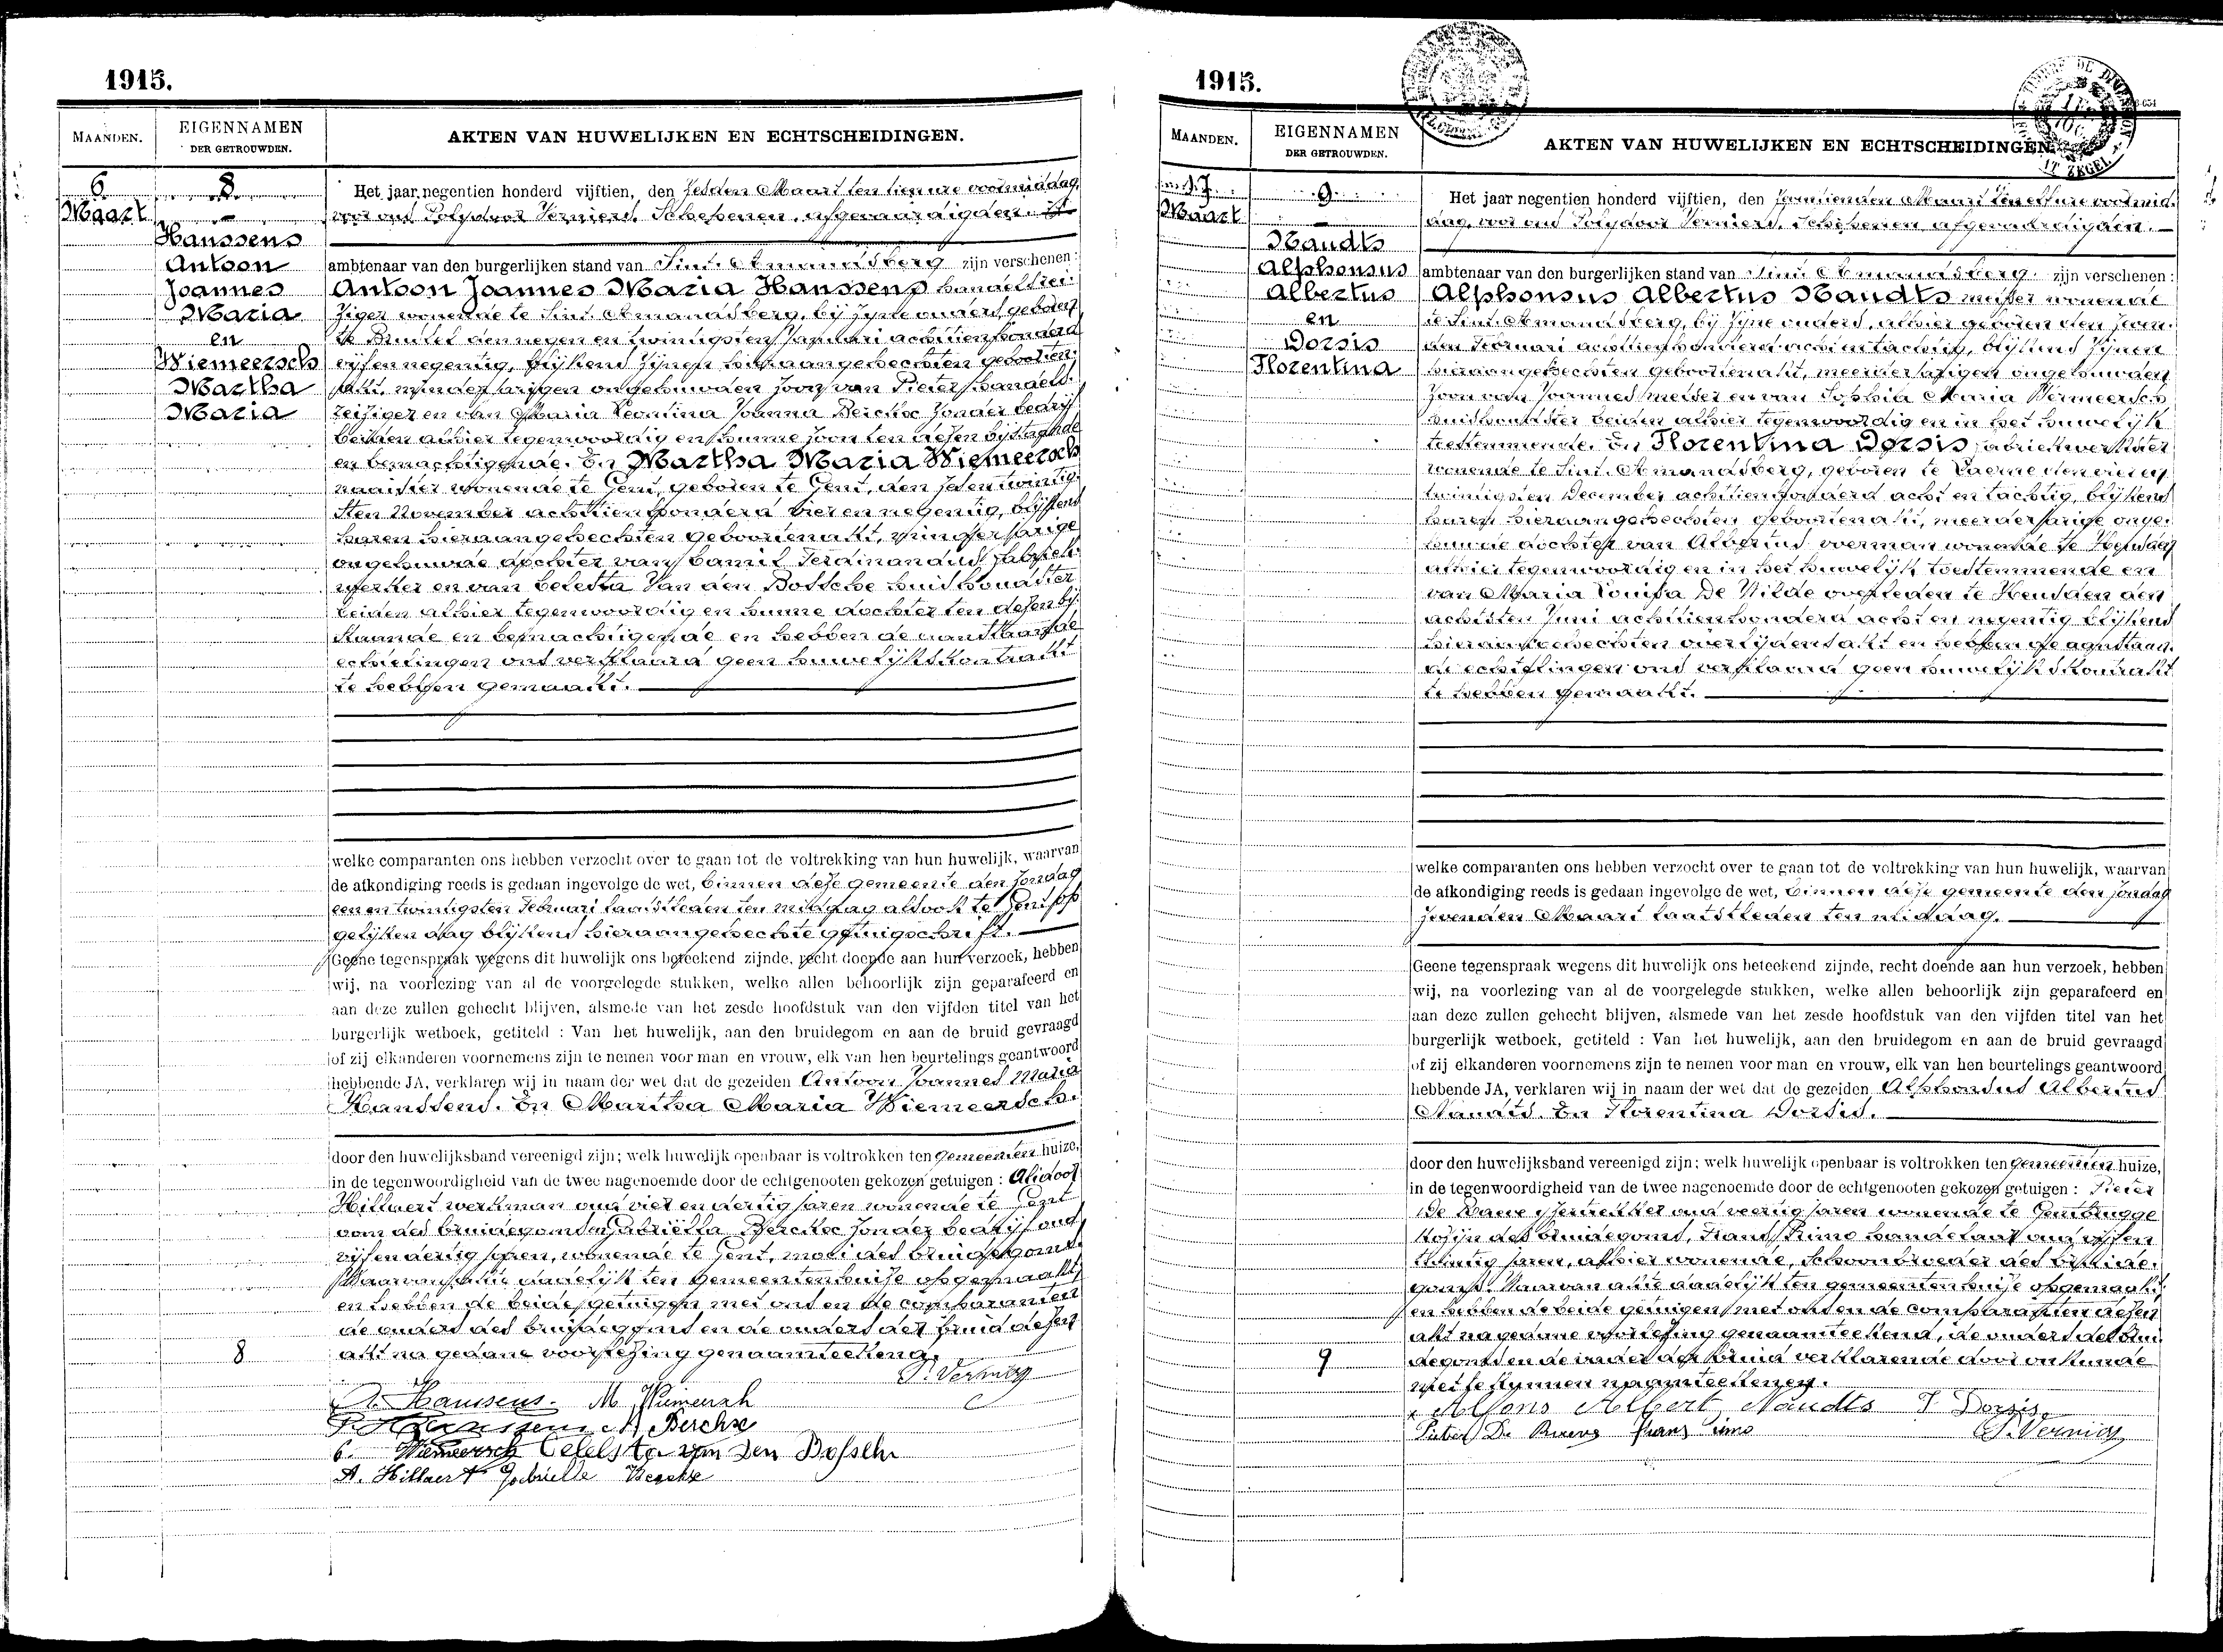 1915.
MAANDEN.
EIGENNAMEN
DER GETROUWDEN.
AKTEN VAN HUWELIJKEN EN ECHTSCHEIDINGEN.
6
Maart
8
Hanssens
Antoon
Joannes
Maria
en
Wiemeersch
Martha
Maria
Het jaar negentien honderd vijftien, den zesden Maart ten tien ure voormiddag,
voor ons Polydoor Verniers, Schepenen, afgevaardigden
ambtenaar van den burgerlijken stand van Sint-Amandsberg zijn verschenen:
Antoon Joannes Maria Hanssens handelsrei-
ziger wonende te Sint-Amandsberg, bij zijne ouders, geboren
te Brussel den negen en twintigsten Januari achttienhonderd
vijf en negentig, blijkens zijnen hieraangehechten geboorten-
akt, minderjarigen ongehuwden zoon van Pieter handels-
reiziger en van Maria Leontina Joanna Berckx zonder bedrijf
beiden alhier tegenwoordig en hunne zoon ten dezen bijstaande
en bemachtigende. En Martha Maria Wiemeersch
naaister wonende te Gent, geboren te Gent, den zesentwintig-
sten November achttienhonderd vier en negentig, blijkens
haren hieraangehechten geboortenakt, minderjarige
ongehuwde dochter van Camil Ferdinandus fabriek-
werker en van Celesta Van den Bossche huishoudster
beiden alhier tegenwoordig en hunne dochter ten dezen bij-
staande en bemachtigende en hebben de aanstaande
echtelingen ons verklaard geen huwelijkskontrakt
te hebben gemaakt.
welke comparanten ons hebben verzocht over te gaan tot de voltrekking van hun huwelijk, waarvan
de afkondiging reeds is gedaan ingevolge de wet, binnen deze gemeente den zondag
een en twintigsten Februari laatstleden ten middag alsook te Gent op
gelijken dag blijkens hieraangehechte getuigschrift.
Geene tegenspraak wegens dit huwelijk ons beteekend zijnde, recht doende aan hun verzoek, hebben
wij, na voorlezing van al de voorgelegde stukken, welke allen behoorlijk zijn geparafeerd en
aan deze zullen gehecht blijven, alsmede van het zesde hoofdstuk van den vijfden titel van het
burgerlijk wetboek, getiteld : Van het huwelijk, aan den bruidegom en aan de bruid gevraagd
of zij elkanderen voornemens zijn te nemen voor man en vrouw, elk van hen beurtelings geantwoord
hebbende JA, verklaren wij in naam der wet dat de gezeiden Antoon Joannes Maria
Hanssens. En Martha Maria Wiemeersch.
door den huwelijksband vereenigd zijn; welk huwelijk openbaar is voltrokken ten gemeenten huize,
in de tegenwoordigheid van de twee nagenoemde door de echtgenooten gekozen getuigen : Alidoor
Hillaert werkman oud vier en dertig jaren wonende te Gent
oom des bruidegoms en Gabriëlla Berckx zonder bedrijf oud
vijf en dertig jaren, wonende te Gent, moei des bruidegoms.
Waarvan akte dadelijk ten gemeentenhuize opgemaakt,
en hebben de beide getuigen met ons en de comparanten
de ouders des bruidegoms en de ouders der bruid dezen
akt na gedane voorlezing genaamteekend.
8
P. Verniers
A. Hanssens. M. Wiemersch
P. Hanssens M. Berckx
C. Wiemeersch Celesta van den Bossche
A. Hillaert Gabrielle Berckx
1915.
MAANDEN.
EIGENNAMEN
DER GETROUWDEN.
AKTEN VAN HUWELIJKEN EN ECHTSCHEIDINGEN.
Maart
9
Naudts
Alphonsus
Albertus
en
Dorsis
Florentina
Het jaar negentien honderd vijftien, den Maart ten elf ure voormid-
dag, voor ons Polydoor Verniers, Schepenen afgevaardigden.
ambtenaar van den burgerlijken stand van Sint-Amandsberg. zijn verschenen:
Alphonsus Albertus Naudts metser wonende
te Sint-Amandsberg, bij zijne ouders, alhier geboren den
Februari achttienhonderd acht en tachtig, blijkens zijnen
hieraangehechten geboortenakt, meerderjarigen ongehuwden
zoon van Joannes metser en van Sophia Maria Vermeersch
huishoudster beiden alhier tegenwoordig en in het huwelijk
toestemmende. En Florentina Dorsis fabriekwerkster
wonende te Sint-Amandsberg, geboren te Laerne den vier en
twintigsten December achttienhonderd acht en tachtig, blijkens
haren hieraangehechten geboortenakt, meerderjarige onge-
huwde dochter van Albertus voerman wonende te Heusden
alhier tegenwoordig en in het huwelijk toestemmende en
van Maria Louisa De Wilde overleden te Heusden den
achtsten Juni achttienhonderd acht en negentig blijkens
hieraangehechten overlijdensakt en hebben de aanstaan-
de echtelingen ons verklaard geen huwelijkskontrakt
te hebben gemaakt.
welke comparanten ons hebben verzocht over te gaan tot de voltrekking van hun huwelijk, waarvan
de afkondiging reeds is gedaan ingevolge de wet, binnen deze gemeente den zondag
zevenden Maart laatstleden ten middag.
Geene tegenspraak wegens dit huwelijk ons beteekend zijnde, recht doende aan hun verzoek, hebben
wij, na voorlezing van al de voorgelegde stukken, welke allen behoorlijk zijn geparafeerd en
aan deze zullen gehecht blijven, alsmede van het zesde hoofdstuk van den vijfden titel van het
burgerlijk wetboek, getiteld : Van het huwelijk, aan den bruidegom en aan de bruid gevraagd
of zij elkanderen voornemens zijn te nemen voor man en vrouw, elk van hen beurtelings geantwoord
hebbende JA, verklaren wij in naam der wet dat de gezeiden Alphonsus Albertus
Naudts. En Florentina Dorsis.
door den huwelijksband vereenigd zijn; welk huwelijk openbaar is voltrokken ten gemeenten huize,
in de tegenwoordigheid van de twee nagenoemde door de echtgenooten gekozen getuigen : Pieter
oud veertig jaren wonende te Gentbrugge
kozijn des bruidegoms, Frans oud vijf en
jaren, alhier wonende, schoonbroeder des bruide-
goms. Waarvan akte dadelijk ten gemeentenhuize opgemaakt,
en hebben de beide getuigen met ons en de comparanten dezen
akt na gedane voorlezing genaamteekend, de ouders des brui-
degoms en de vader der bruid verklarende door onkunde
niet te kunnen naamteekenen.
9
Alfons Albert Naudts F Dorsis
P. Verniers